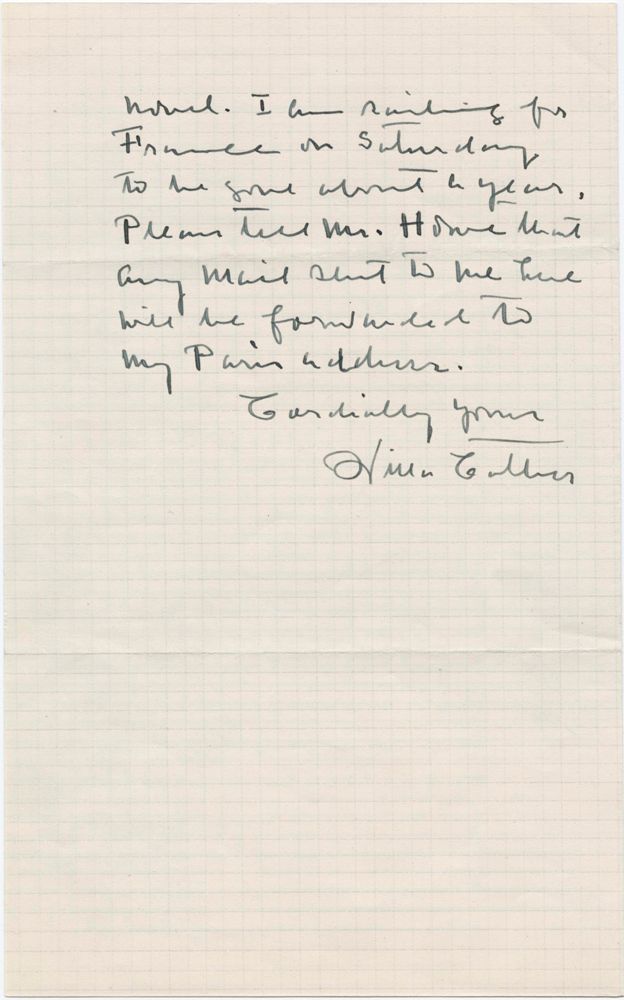 novel. I am sailing for
France on Saturday
to be gone about a year.
Please tell Mr. Howe that
any mail sent to me here
will be forwarded to
my Paris address.
Cordially yours
Willa Cather